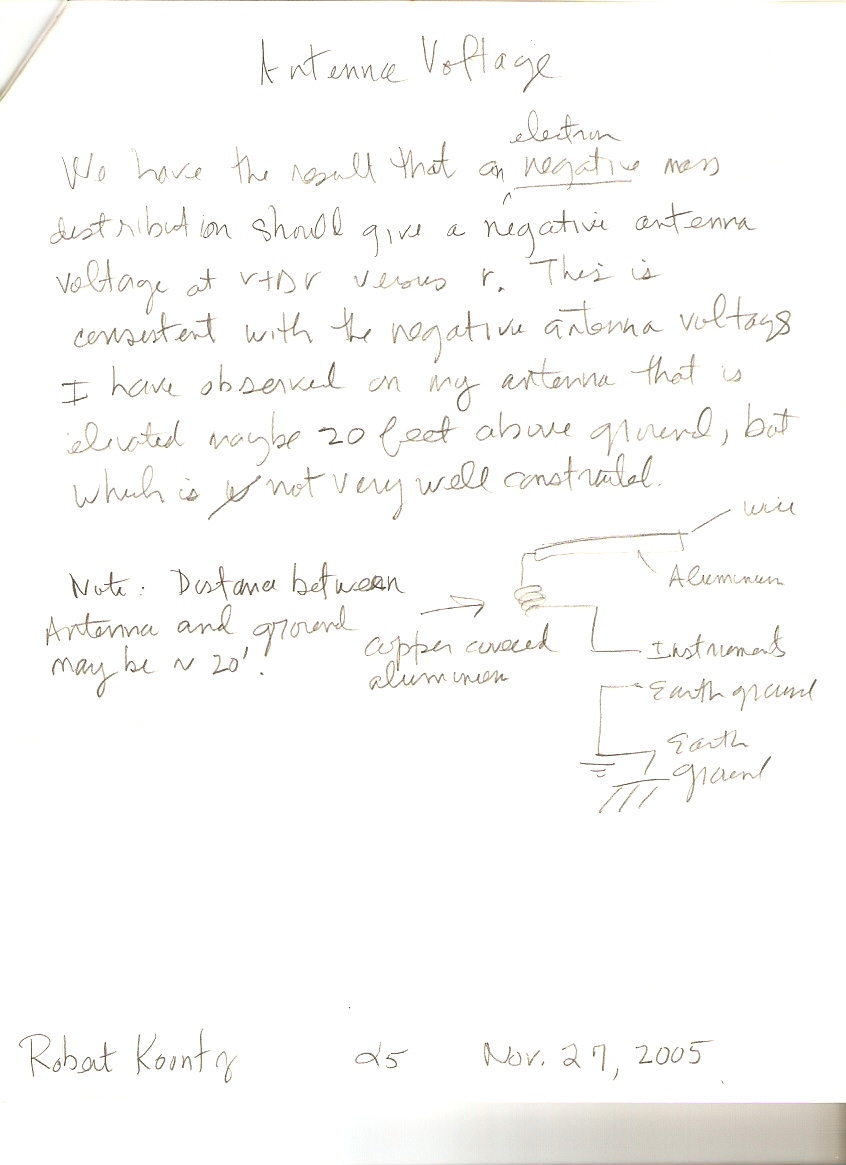 Antenna Voltage
electron
We have the result that an negative mass
distribution should give a negative antenna
voltage at r+Dr versus r. This is
consistent with the negative antenna voltage
I have observed on my antenna that is
elevated maybe 20 feet above ground, but
which is not very well constructed.
wire
Aluminum
Note: Distance between
Antenna and ground
may be ~ 20'.
copper covered
aluminum
Instruments
Earth ground
Earth
ground
Robert Koontz 25 Nov. 27, 2005